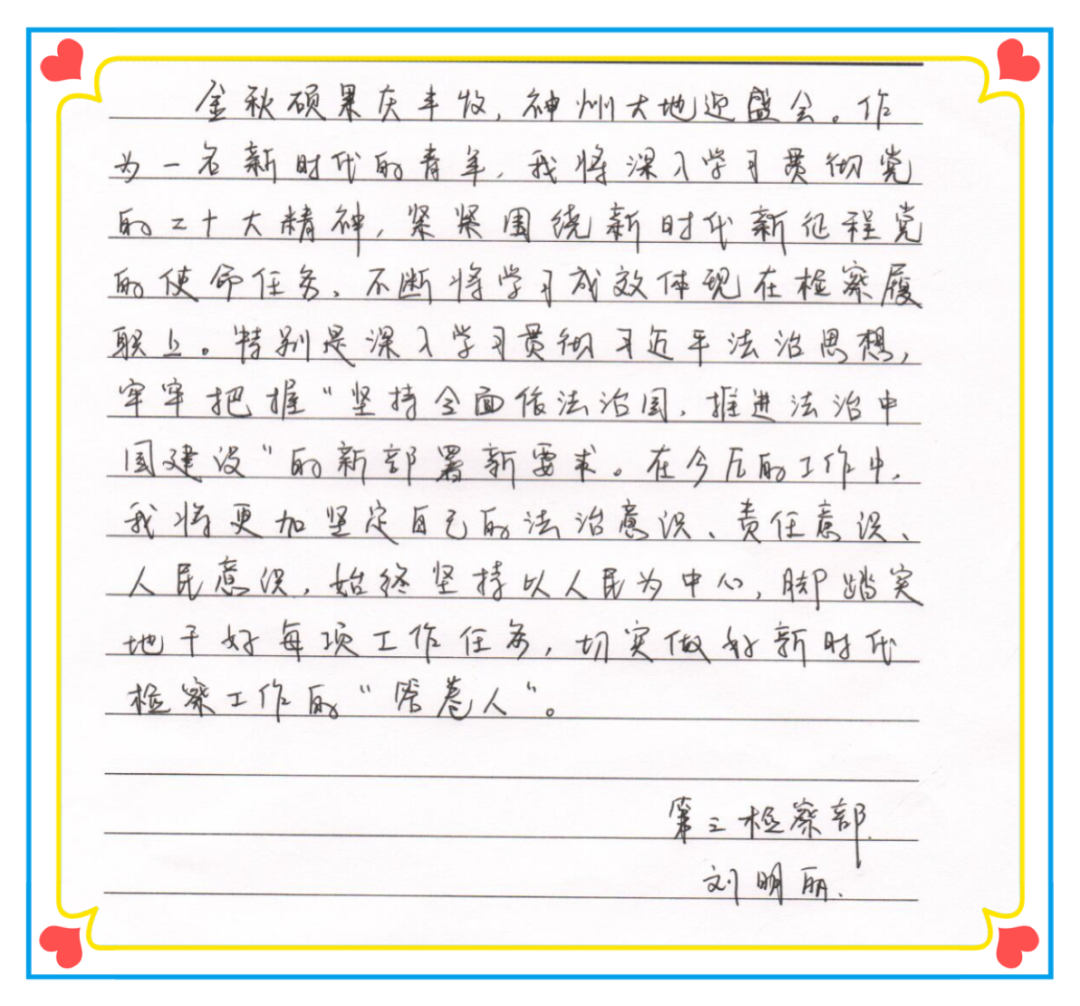 金秋硕果庆丰收，神州大地迎盛会。作
为一名新时代的青年，我将深入学习贯彻党
的二十大精神，紧紧围绕新时代新征程党
的使命任务，不断将学习成效体现在检察履
职上。特别是深入学习贯彻习近平法治思想，
牢牢把握“坚持全面依法治国，推进法治中
国建设”的新部署新要求。在今后的工作中，
我将更加坚定自己的法治意识、责任意识、
人民意识，始终坚持以人民为中心，脚踏实
地干好每项工作任务，切实做好新时代
检察工作的“答卷人”。
第三检察部
刘明丽.